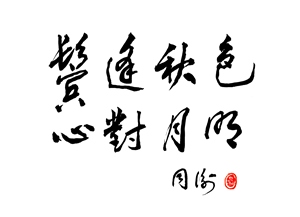 鬢逢秋色
心對月明